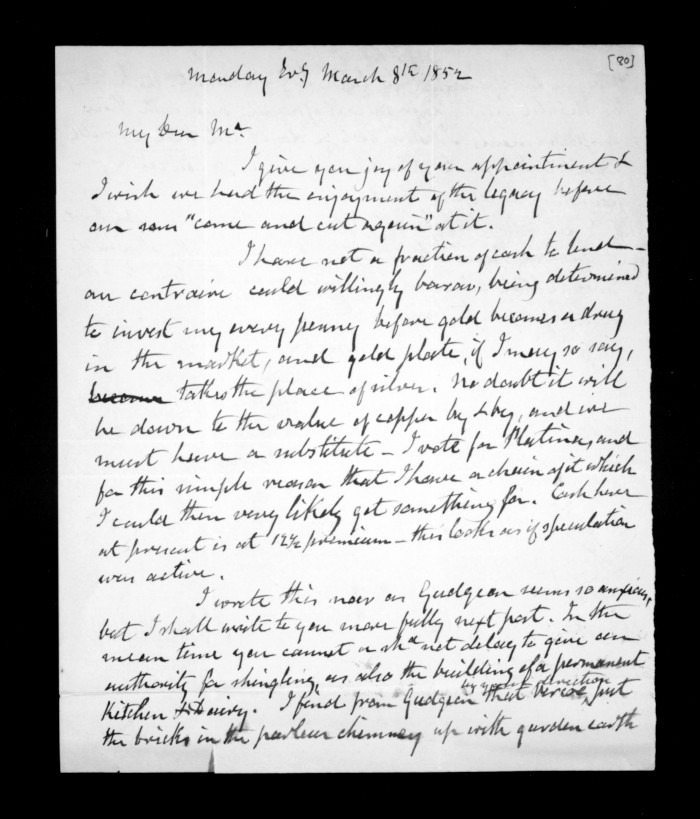 [80]
Monday Evg March 8th 1852
My dear Mc.
I give you joy of your appointment &
I wish we had the enjoyment of the legacy before
our sons "come and cut again" at it.
I have not a fraction of cash to lend -
au contraire could willingly borrow, being determined
to invest my every penny before gold becomes a drug
in the market, and gold plate, if I may so say,
become takes the place of silver. No doubt it will
be down to the value of copper by & bye, and we
must have a substitute - I vote for Platina, and
for this simple reason that I have a chain of it which
I could then very likely get something for. Cash here
at present is at 12½ premium - this looks as if speculation
was active.
I wrote this now as Gudgeon seems so anxious,
but I shall write to you more fully next post. In the
mean time you cannot or shd not delay to give our
authority for shingling as also the building of a permanent
Kitchen & dairy. I find from Gudgeon that by your direction put
the bricks in the parlour chimney up with garden earth